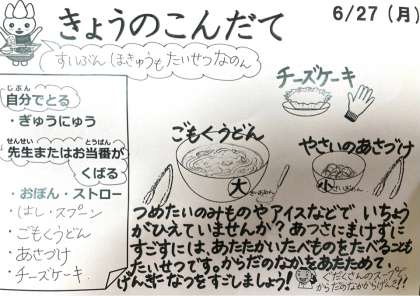 きょうのこんだて
6/27(月)
すいぶんほきゅうもたいせつなのん
じぶん
自分でとる
・ぎゅうにゅう
せんせい とうばん
先生またはお当番が
くばる
・おぼん・ストロー
・はし・スプーン
・ごもくうどん
・あさづけ
・チーズケーキ
チーズケーキ
ごもくうどん
大
やさいのあさづけ
小
つめたいのみものやアイスなどで いちょう
がひえていませんか?あつさにまけずに
すごすには、あたたかいたべものをたべることも
たいせつです。からだのなかをあたためて、
げんきになつをすごしましょう!
ぐだくさんのスープで
からだのなかからげんきに!!